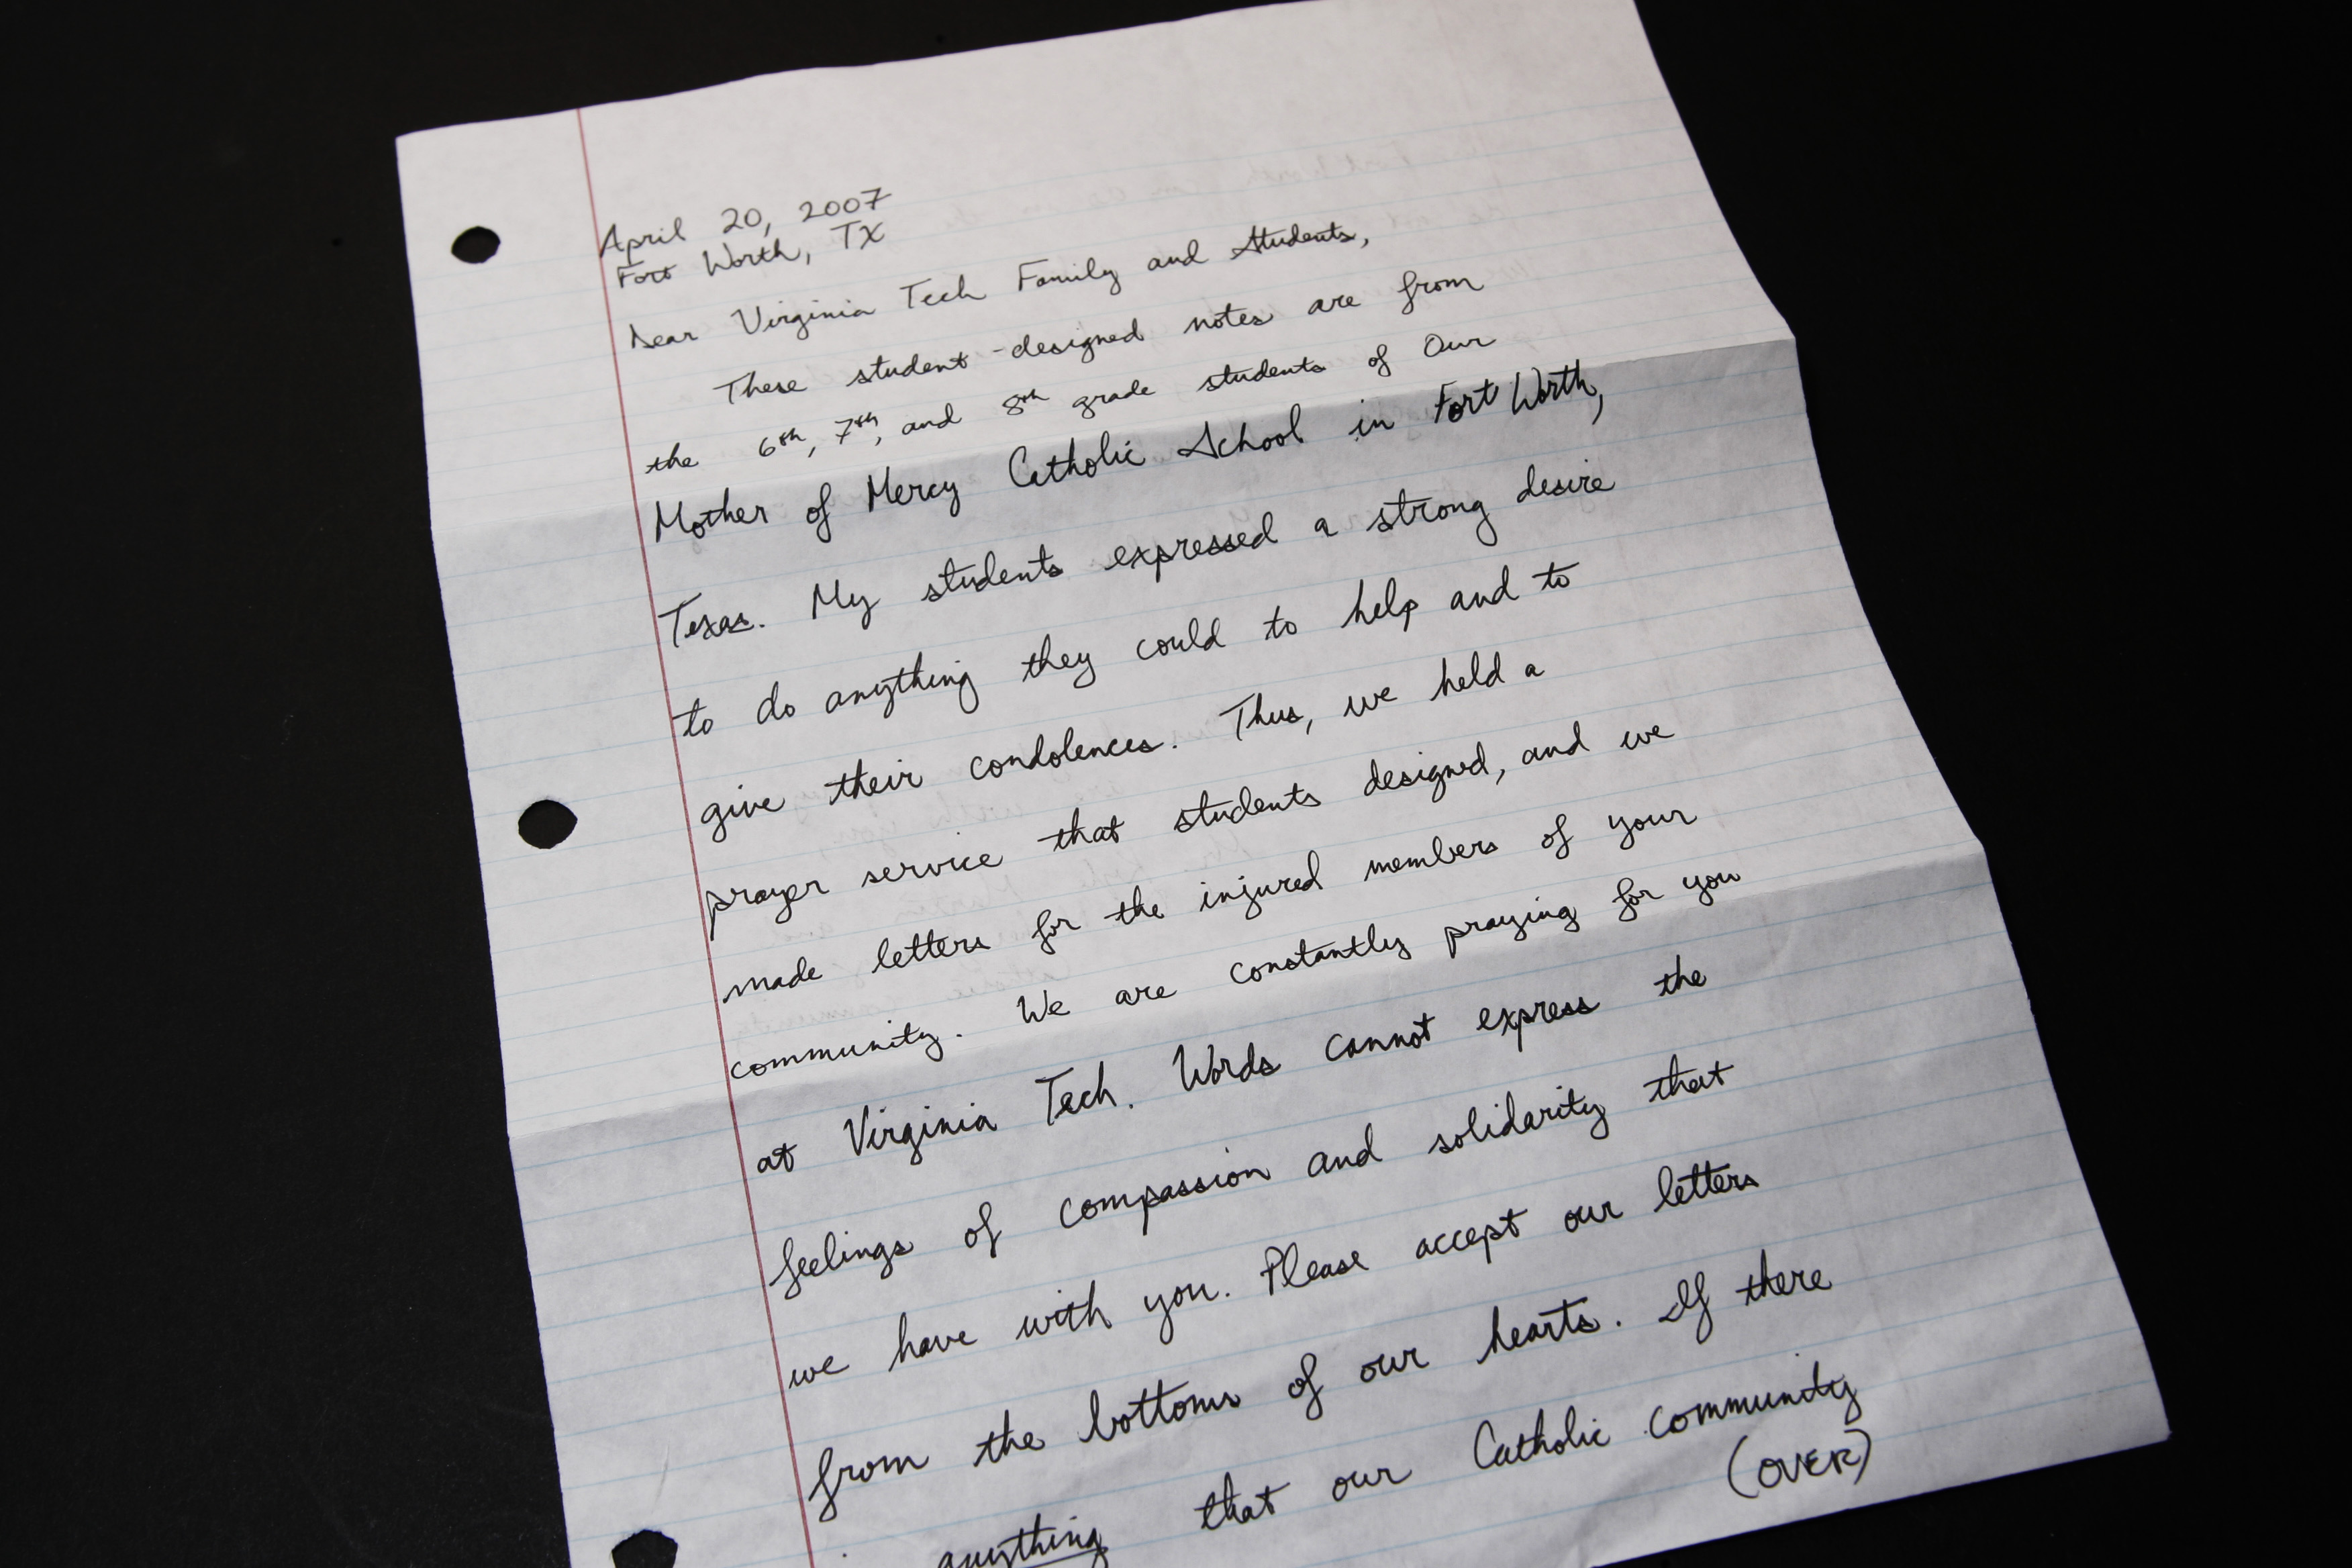 April 20, 2007
Fort Worth, TX
Dear Virginia Tech Family and Students,
These student-designed notes are from
the 6th, 7th, and 8th grade students of Our
Mother of Mercy Catholic School in Fort Worth,
Texas. My students expressed a strong desire
to do anything they could to help and to
give their condolences. Thus, we held a
prayer service that students designed, and we
made letters for the injured members of your
community. We are constantly praying for you
at Virginia Tech. Words cannot express the
feelings of compassion and solidarity that
we have with you. Please accept our letters
from the bottoms of our hearts. If there
anything that our Catholic community
(OVER)